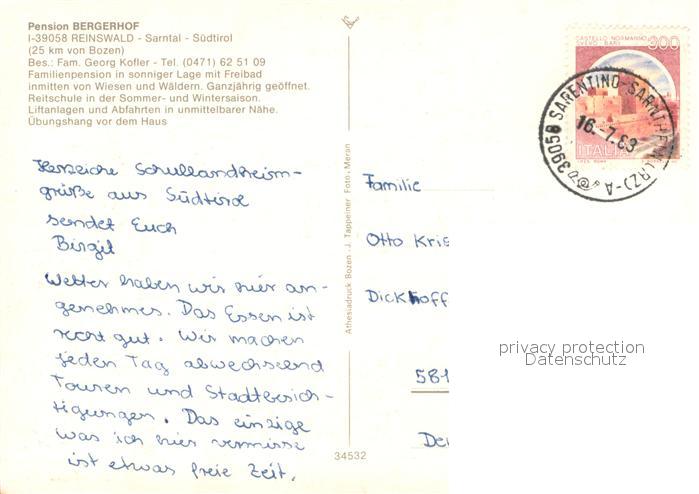 Pension BERGERHOF
I-39058 REINSWALD - Sarntal - Südtirol
(25 km von Bozen)
Bes.: Fam. Georg Kofler - Tel. (0471) 62 51 09
Familienpension in sonniger Lage mit Freibad
inmitten von Wiesen und Wäldern. Ganzjährig geöffnet.
Reitschule in der Sommer- und Wintersaison.
Liftanlagen und Abfahrten in unmittelbarer Nähe.
Übungshang vor dem Haus
Herzliche Schullandheim-
grüße aus Südtirol
sendet Euch
Birgit
Wetter haben wir hier an-
genehmes. Das Essen ist
recht gut. Wir machen
jeden Tag abwechselnd
Touren und Stadtbesich-
tigungen. Das einzige
was ich hier vermisse
ist etwas freie Zeit.
Athesiadruck Bozen - J. Tappeiner Foto, Meran
34532
CASTELLO NORMANNO
SVEVO BARI
300
ITALIA
39058 SARENTINO-SARNTHEIN (BZ) - A
16.-7.83
Familie
Otto Kris
Dickhoff
581
De
privacy protection
Datenschutz